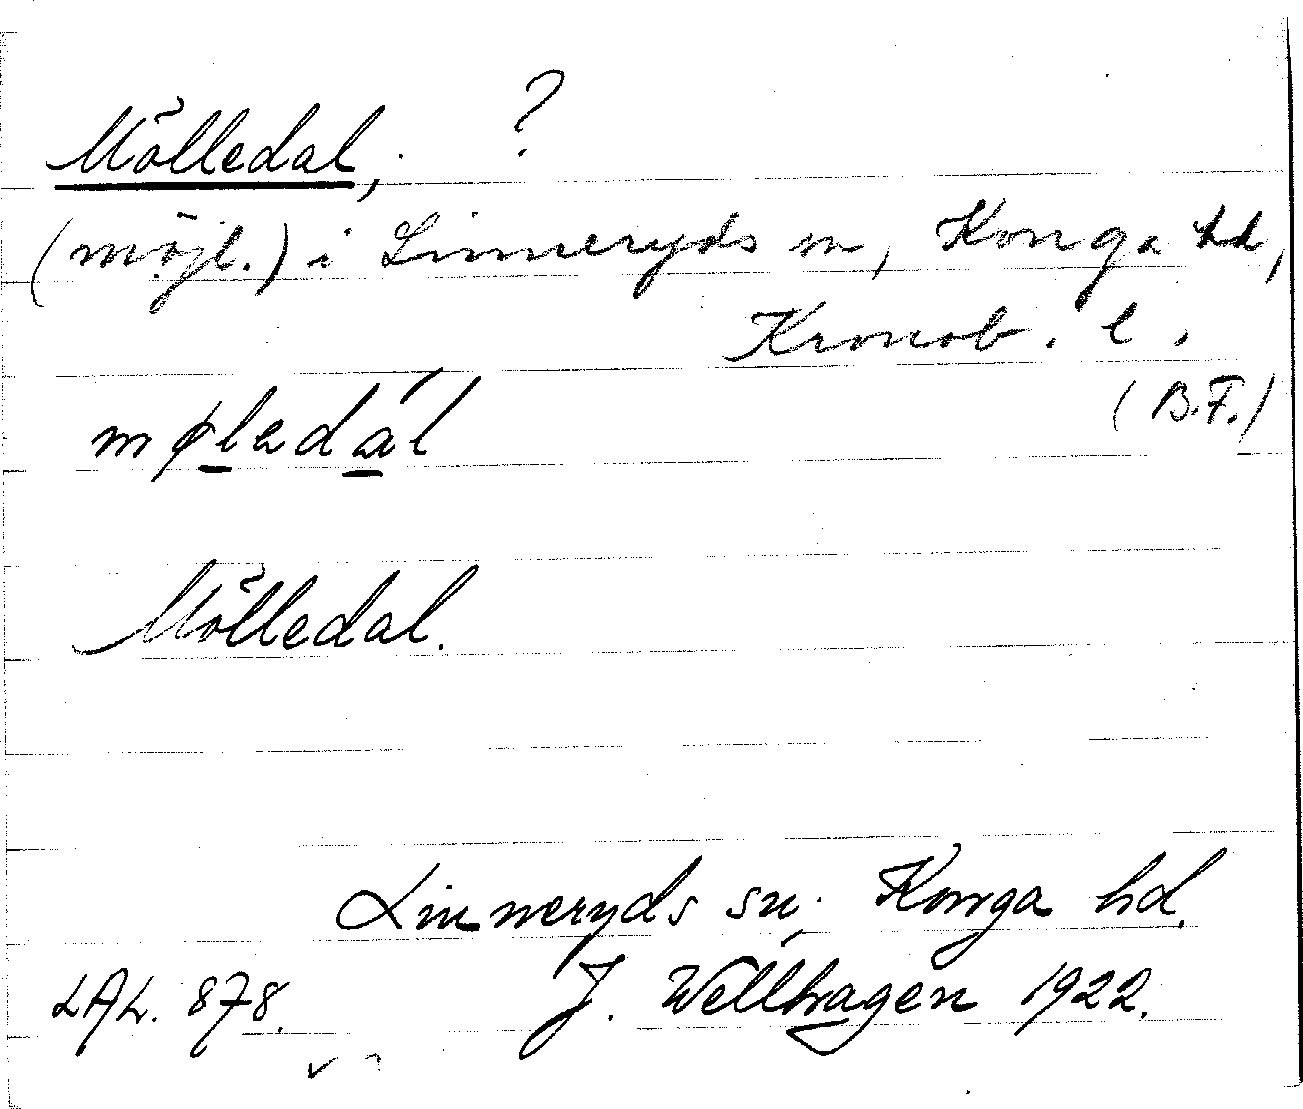 Mölledal, ?
(möjl.) i Linneryds sn, Konga hd,
Kronob. l.
(B.F.)
møledál
Mölledal.
Linneryds sn. Konga hd.
LAL. 878. J. Wellhagen 1922.